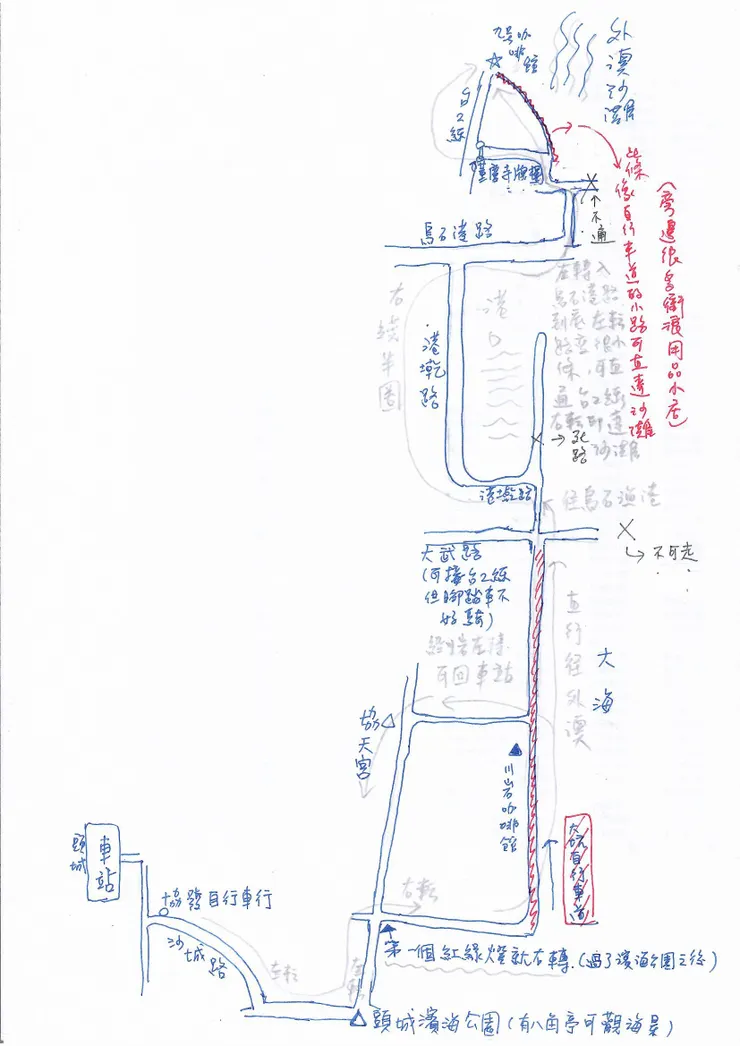 九号咖啡館
外澳沙灘
台2線
薩摩寺牌樓
此條像自行車道的小路可直達沙灘
(旁邊很多衝浪用品小店)
不通
烏石港路
左轉入
烏石港路
到底左轉
直
通台2線
右轉即達
沙灘
右繞半圈
港
港墘路
死路
港墘路
往烏石漁港
不可走
大武路
(可接台2線
但腳踏車不
好騎)
左轉
可回車站
直行往外澳
大海
協天宮
川岩咖啡館
大坑自行車道
右転
頭城
車站
協發自行車行
沙城路
左転
左転
第一個紅綠燈就右轉(過了濱海公園之後)
頭城濱海公園(有八角亭可觀海景)